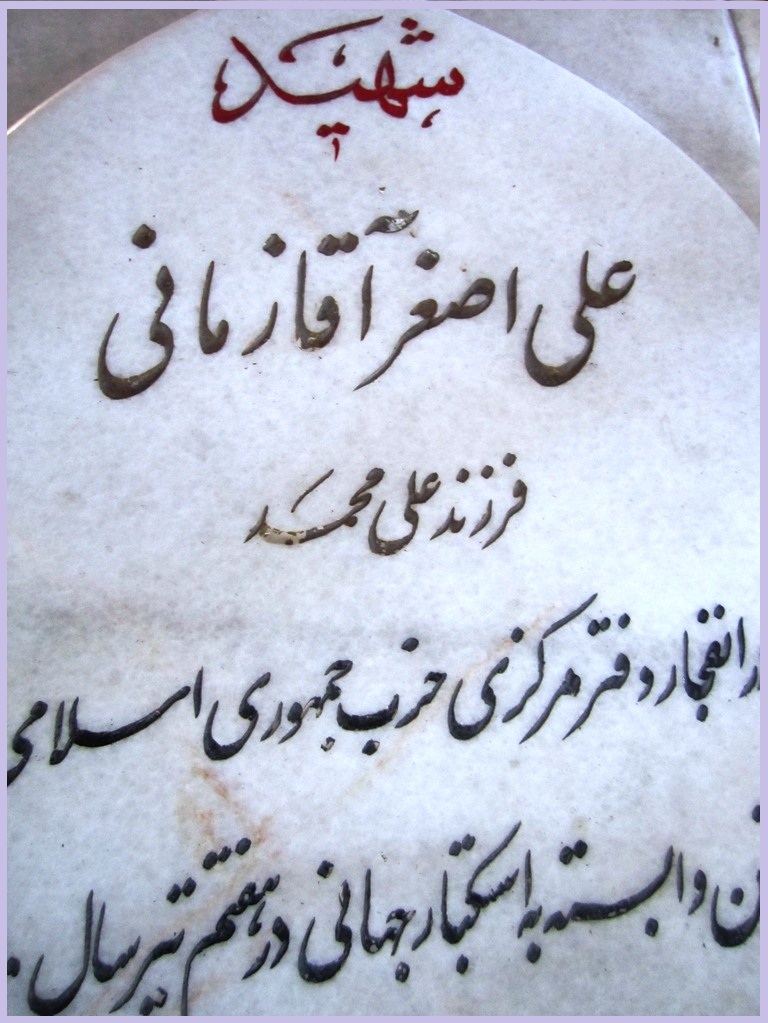 شهید
علی اصغر آقازمانی
فرزند علی محمد
در انفجار دفتر مرکزی حزب جمهوری اسلامی
وابسته به استکبار جهانی در هفتم تیر سال